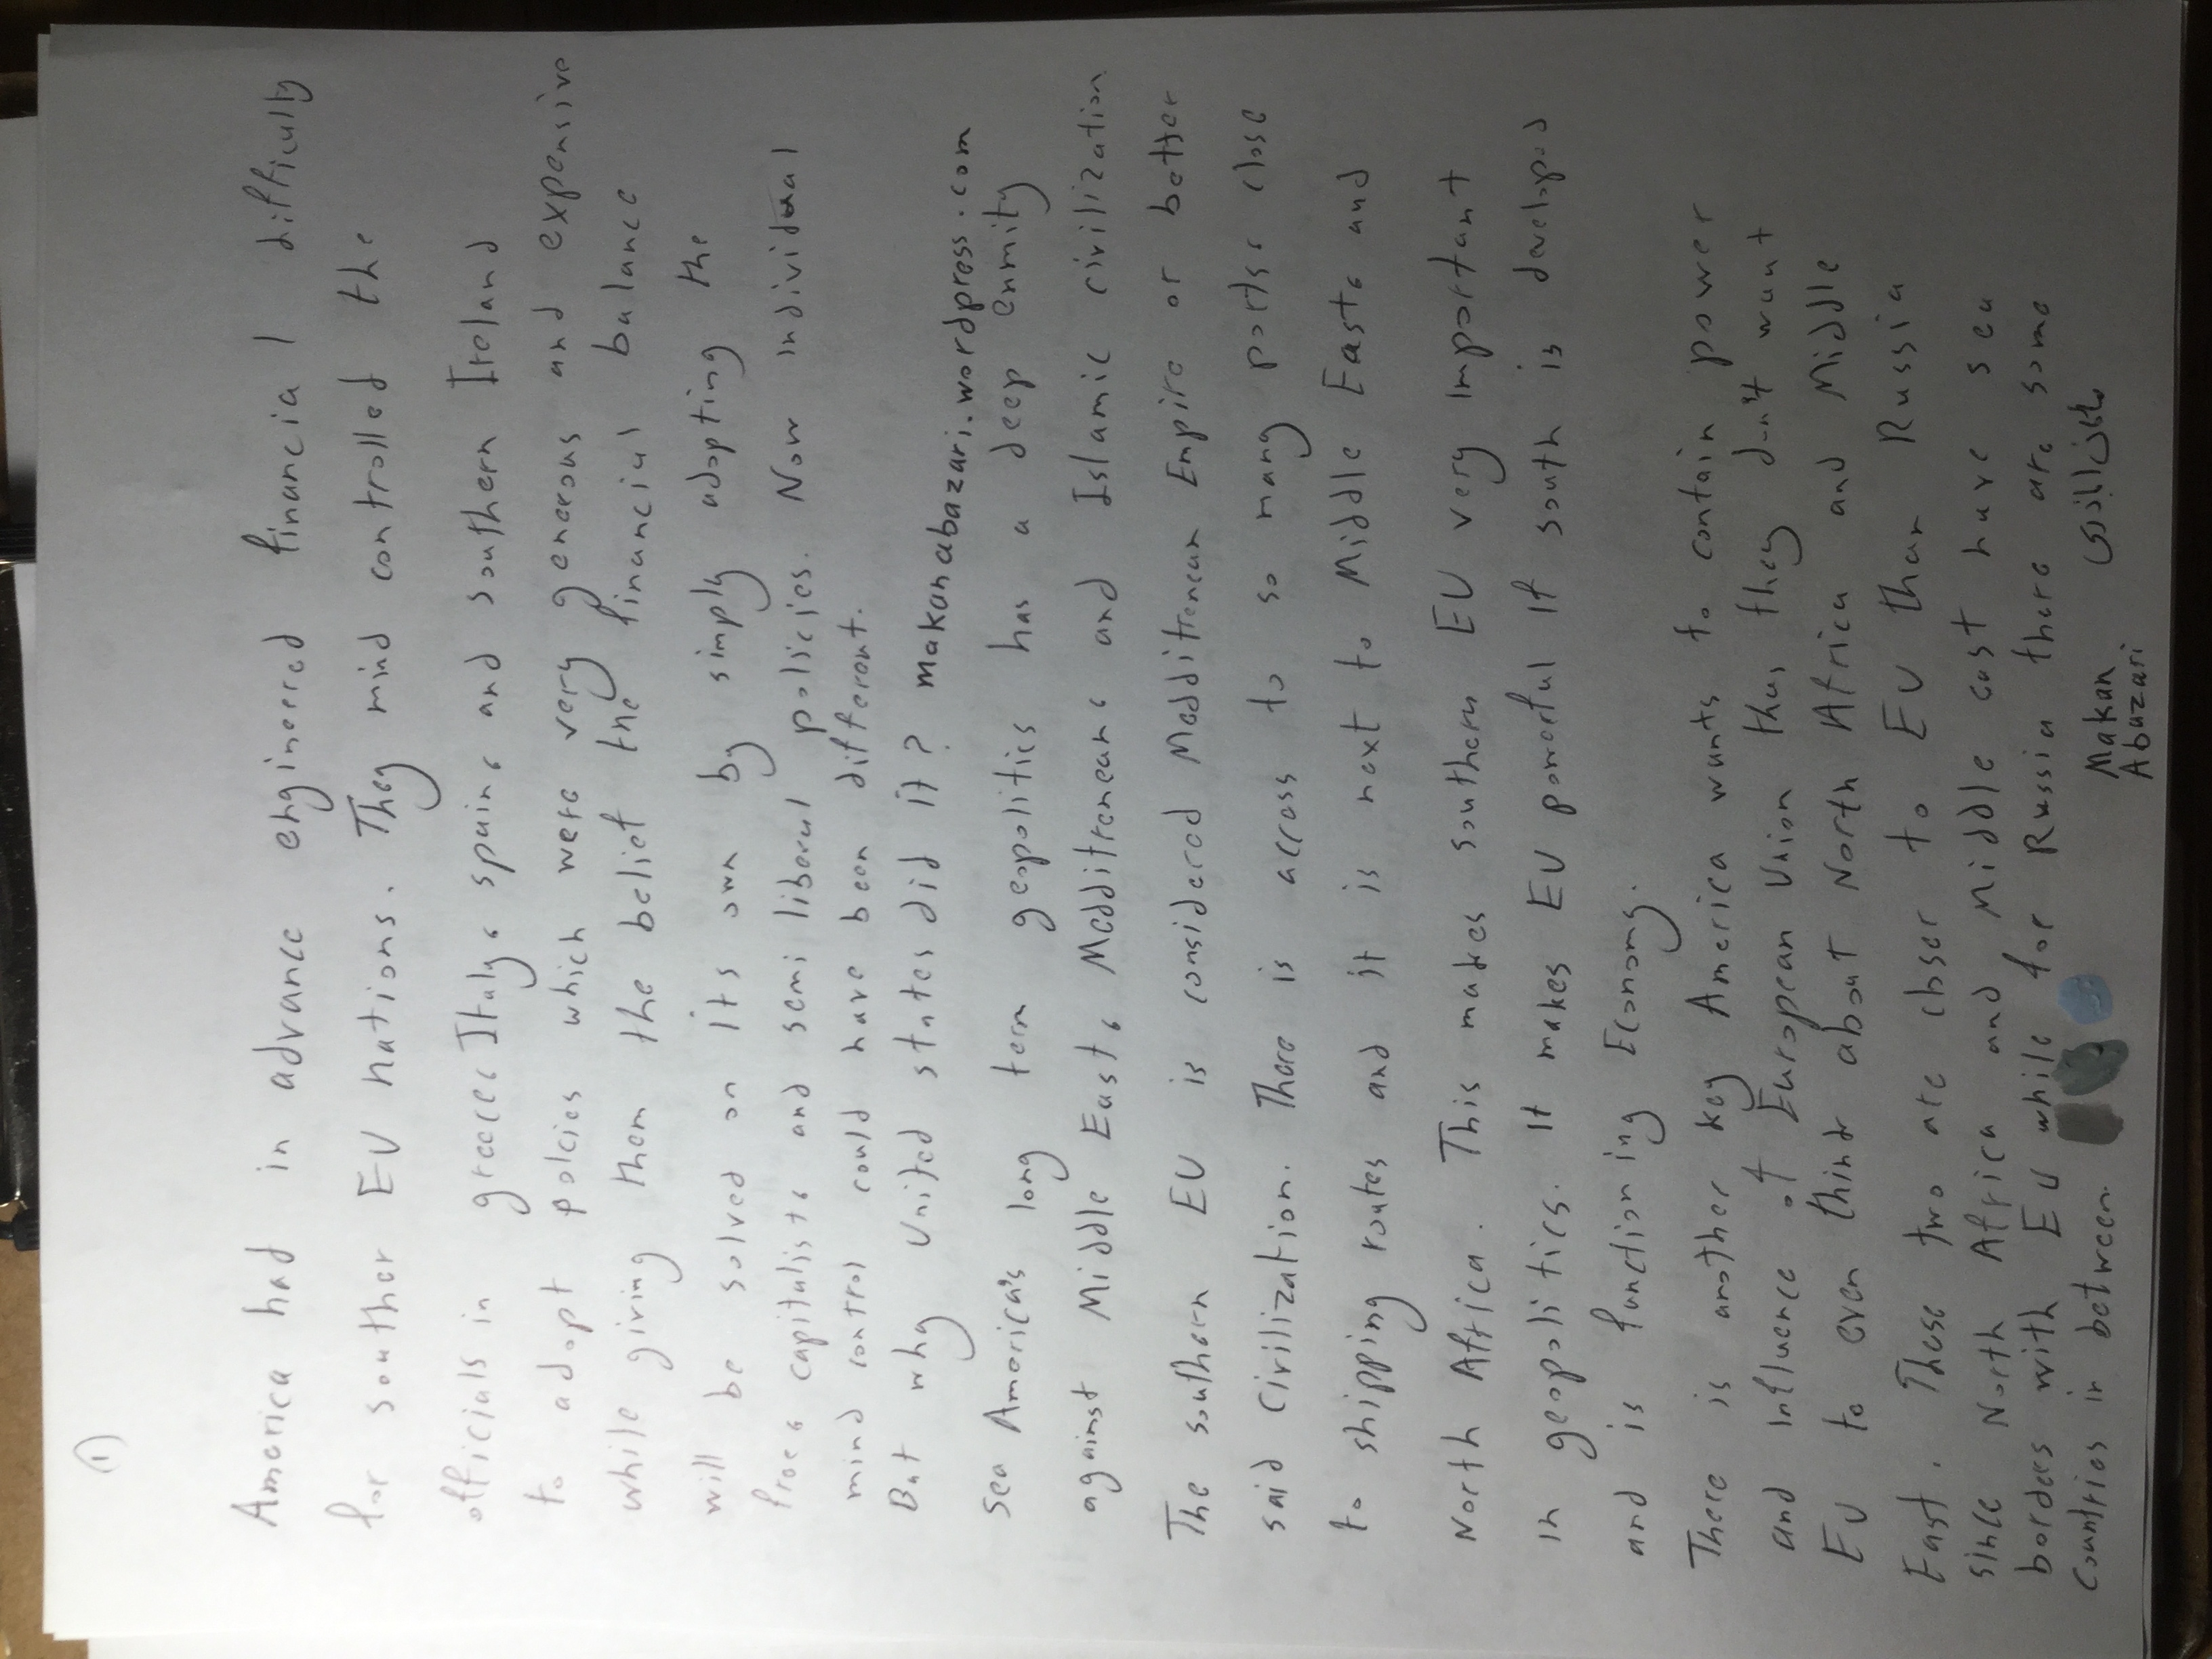 ①
America had in advance engineered financial difficully
for souther EU nations. They mind controlled the
officials in greece، Italy، spain، and southern Ireland
to adopt polcies which were very generous and expensive
while giving them the belief the financial balance
will be solved on its own by simply adopting the
free، capitalist، and semi liberal policies. Now individual
mind control could have been different.
But why United states did it? makanabazari.wordpress.com
See America's long term geopolitics has a deep enmity
against Middle East، Madditrenean، and Islamic civilization
The southern EU is considered Madditrenean Empire or better
said civilization. There is access to so many ports، close
to shipping routes and it is next to Middle East، and
North Africa. This makes southern EU very important
in geopolitics. It makes EU powerful If south is developed
and is functioning Economy.
There is another key America wants to contain power
and influence of European Union thus they don't want
EU to even think about North Africa and Middle
East. These two are closer to EU than Russia
since North Africa and Middle east have sea
borders with EU while for Russia there are some
countries in between.
Makan
Abazari